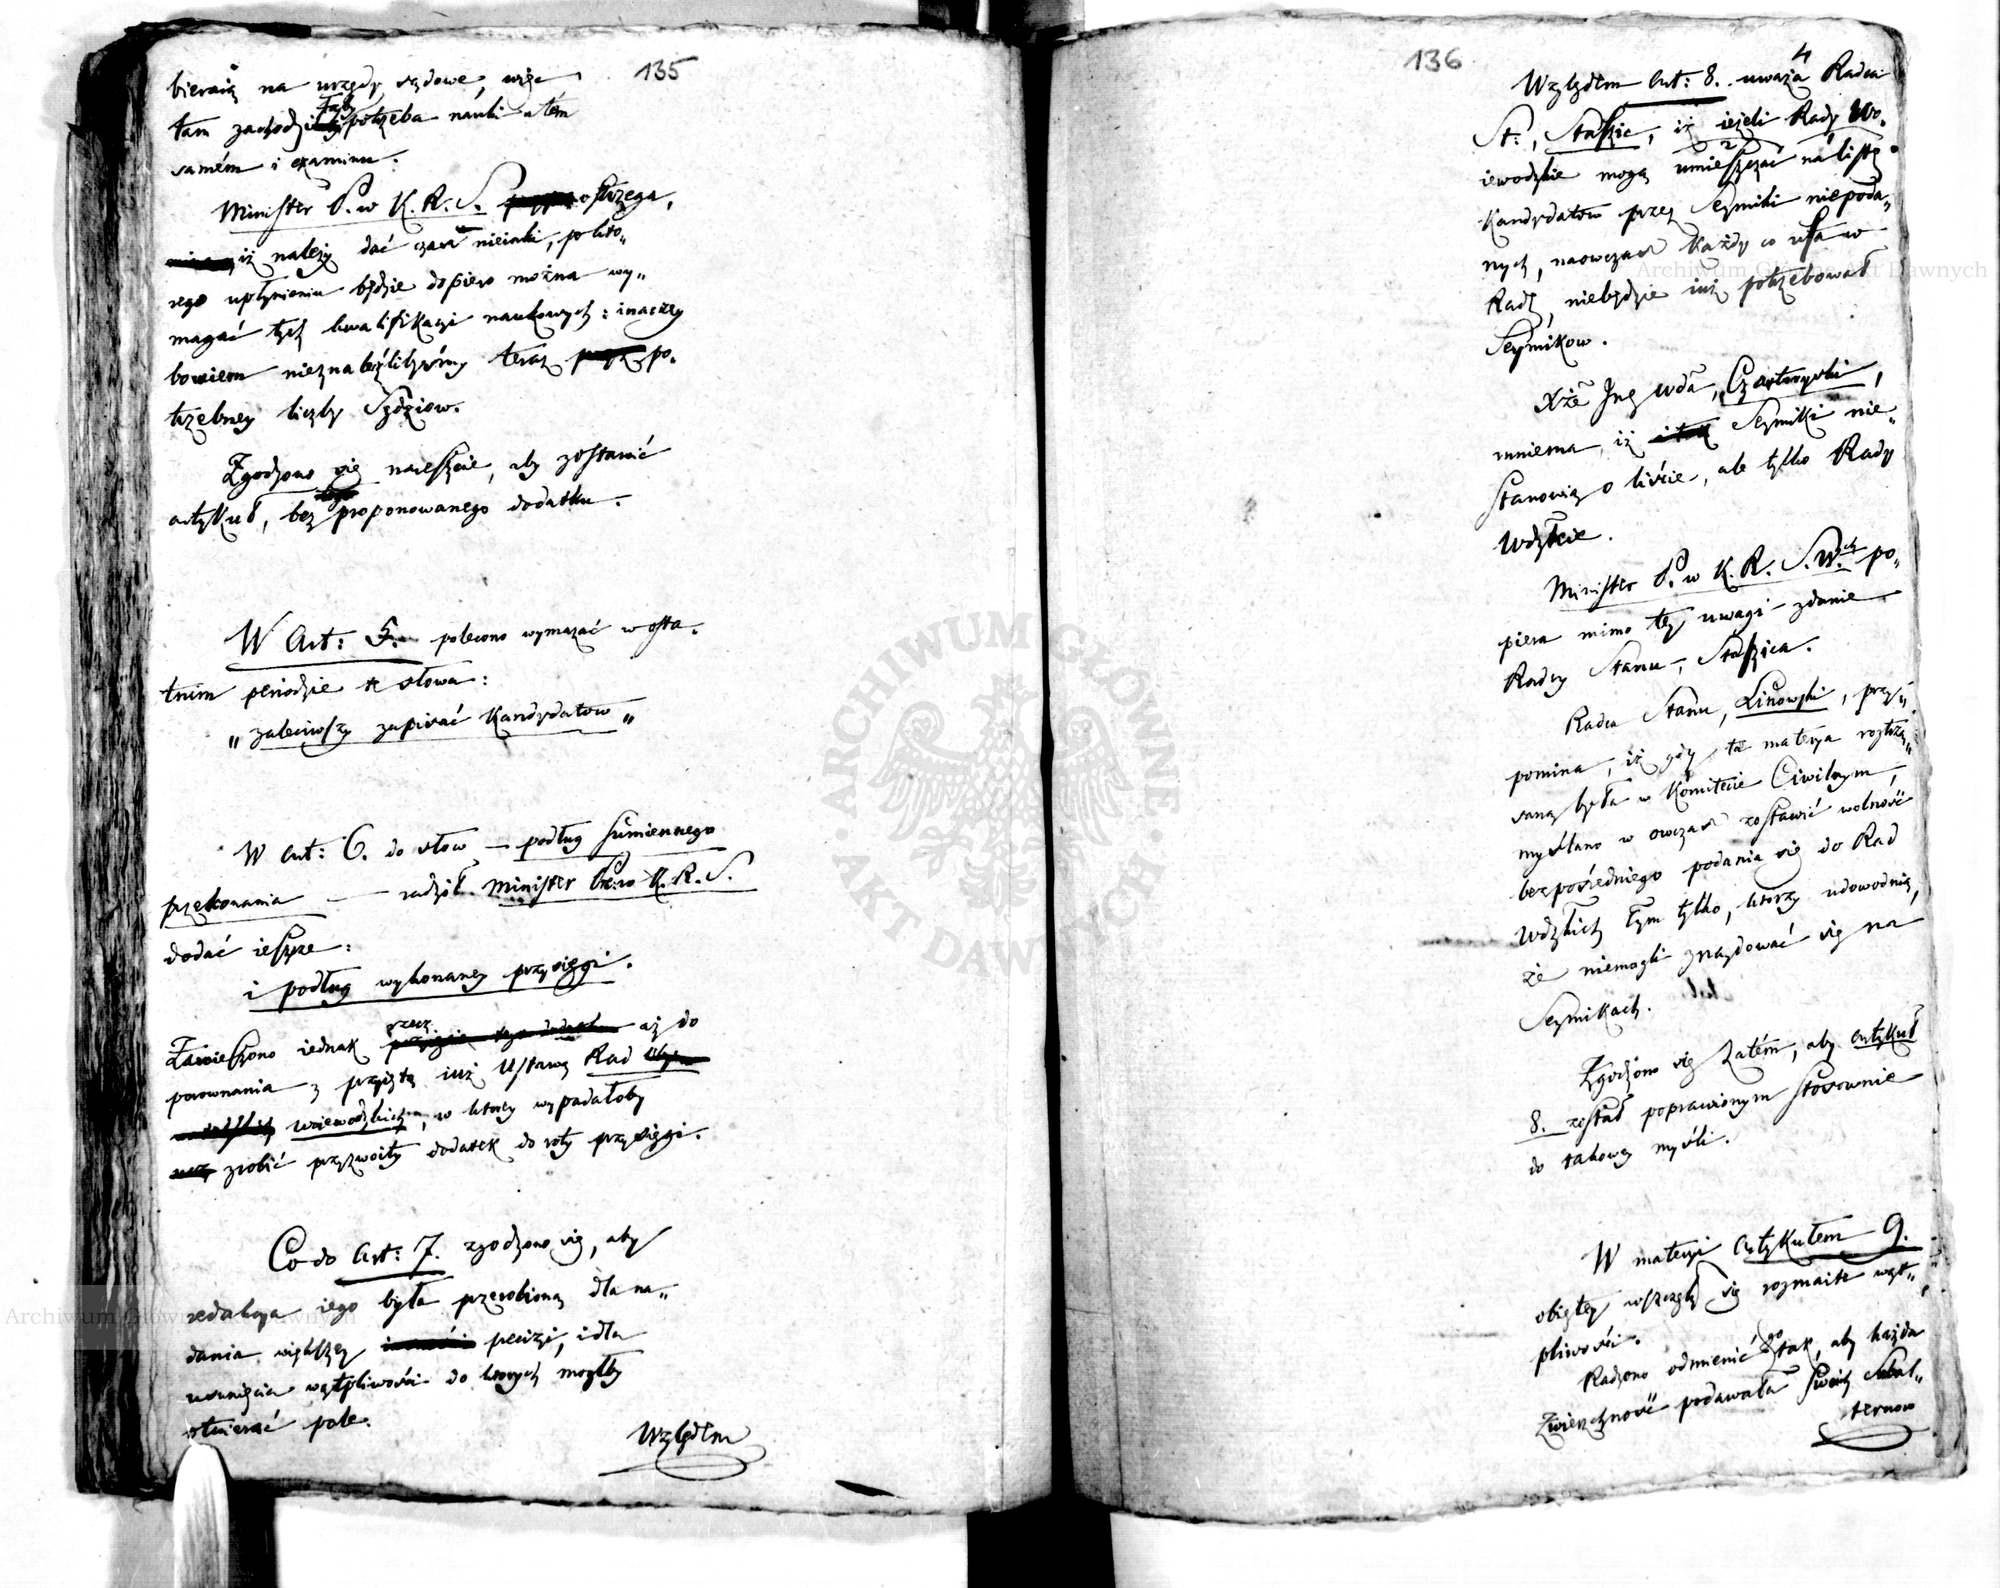 135
bieraią na urzędy sądowe, więc
tam zachodzi potrzeba nauki a tém
samém i examinu.
Minister P. w K. R. S. ostrzega,
iż należy dać czas nieiaki, po któ„
rego upłynieniu będzie dopiero można wy„
magać tych kwalifikacyi naukowych: inaczey
bowiem nieznaleźlibyśmy teraz po„
trzebney liczby Sędziow.
Zgodzono się nareszcie, aby zostawić
artykuł, bez proponowanego dodatku.
W Art: 5. polecono wymazać w osta„
tnim periodzie te słowa:
„zaleciwszy zapisać Kandydatow„
W Art: 6. do słow — podług sumiennego
przekonania — radził Minister Pr. w K. R. S.
dodać ieszcze:
i podług wykonaney przysięgi.
Zawieszono iednak rzecz aż do
porownania z przyiętą iuż Ustawą Rad
woiewodzkich, w ktorey wypadałoby
zrobić przyzwoity dodatek do roty przysięgi.
Co do Art: 7. zgodzono się, aby
redakcya iego była przerobioną dla na„
dania większey precizyi, i dla
usunięcia wątpliwości do ktorych mogłby
otwierać pole.
Względem
136
4
Względem Art: 8. uważa Radca
St:, Staszic, iż ieżeli Rady Wo„
iewodzkie mogą umieszczać na listę
Kandydatow przez Seymiki niepoda„
nych, naowczas każdy co ufa w
Radę, niebędzie iuż potrzebował
Seymikow.
Xżę Jnę Wda, Czartoryski,
mniema, iż Seymiki nie„
stanowią o liście, ale tylko Rady
Wdzkie.
Minister P. w K. R. S. W.ch po„
piera mimo tey uwagi zdanie
Radcy Stanu, Staszica.
Radca Stanu, Linowski, przy„
pomina, iż gdy ta materya roztrzą„
saną była w Komitecie Ciwilnym,
myślano w owczas zostawić wolność
bezpośredniego podania się do Rad
Wdzkich tym tylko, ktorzy udowodnią,
że niemogli znaydować się na
Seymikach.
Zgodzono się Zatém, aby artykuł
8. został poprawionym stosownie
do takowey myśli.
W materyi Artykułem 9.
obiętey wszczęły się rozmaite wąt„
pliwości.
Radzono odmienić go tak, aby każda
Zwierzchność podawała swoich Subal„
ternow
ARCHIWUM GŁÓWNE AKT DAWNYCH
Archiwum Główne Akt Dawnych
Archiwum Główne Akt Dawnych